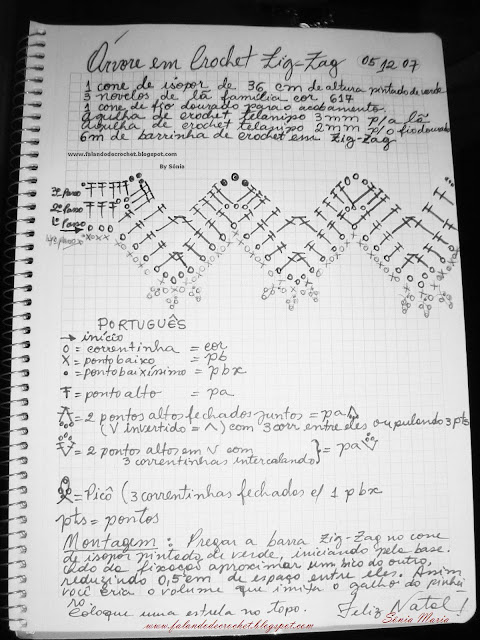 Árvore em Crochet Zig-Zag 05 12 07
1 cone de isopor de 36 cm de altura pintado de verde
3 novelos de lã família cor 617
1 cone de fio dourado para o acabamento.
Agulha de crochet telanipo 3 mm p/a lã
Agulha de crochet telanipo 2mm p/o fio dourado
6m de barrinha de crochet em Zig-Zag
www.falandodecrochet.blogspot.com
By Sônia
3ª carr
2ª carr
1ª carr
PORTUGUÊS
→ início
o = correntinha = cor
x = ponto baixo = pb
• = ponto baixíssimo = pbx
= ponto alto = pa
= 2 pontos altos fechados juntos = pa
(V invertido = Λ) com 3 corr entre eles ou pulando 3 pts
= 2 pontos altos em V com
3 correntinhas intercalando } = pa
= Picô (3 correntinhas fechados c/ 1 pbx
pts = pontos
Montagem: Pregar a barra Zig-Zag no cone
de isopor pintado de verde, iniciando pela base.
da fixação aproximar um bico do outro,
reduzindo 0,5 cm de espaço entre eles. Assim
você cria o volume que imita o galho do pinhei
ro.
Coloque uma estrela no topo. Feliz Natal!
www.falandodecrochet.blogspot.com Sônia Maria